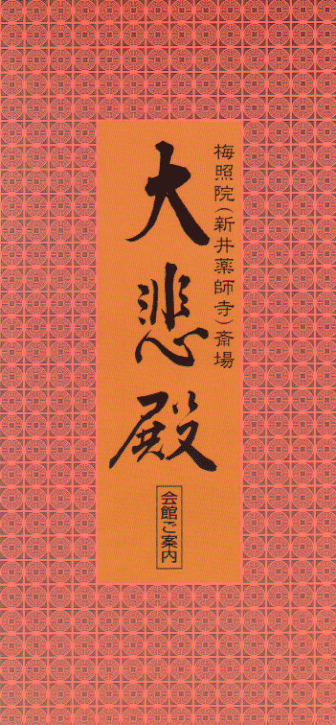 梅照院(新井薬師寺)斎場
大悲殿
会館ご案内